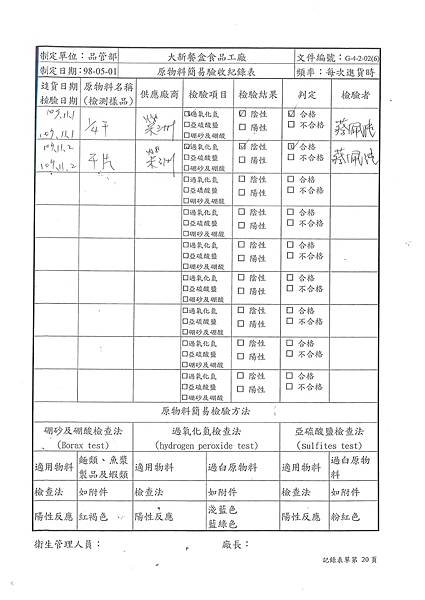 制定單位：品管部 大新餐盒食品工廠 文件編號：G-4-2-02(6)
制定日期：98-05-01 原物料簡易驗收紀錄表 頻率：每次進貨時
進貨日期 檢驗日期 原物料名稱 (檢測樣品) 供應廠商 檢驗項目 檢驗結果 判定 檢驗者
109.11.1 ☑過氧化氫 ☑ 陰性 ☑ 合格
109.11.1 1/4干 榮洲 □亞硫酸鹽 □ 陽性 □ 不合格 蔡佩
□硼砂及硼酸
109.11.2 ☑過氧化氫 ☑ 陰性 ☑ 合格
109.11.2 干片 榮洲 □亞硫酸鹽 □ 陽性 □ 不合格 蔡佩
□硼砂及硼酸
□過氧化氫 □ 陰性 □ 合格
□亞硫酸鹽 □ 陽性 □ 不合格
□硼砂及硼酸
□過氧化氫 □ 陰性 □ 合格
□亞硫酸鹽 □ 陽性 □ 不合格
□硼砂及硼酸
□過氧化氫 □ 陰性 □ 合格
□亞硫酸鹽 □ 陽性 □ 不合格
□硼砂及硼酸
□過氧化氫 □ 陰性 □ 合格
□亞硫酸鹽 □ 陽性 □ 不合格
□硼砂及硼酸
□過氧化氫 □ 陰性 □ 合格
□亞硫酸鹽 □ 陽性 □ 不合格
□硼砂及硼酸
□過氧化氫 □ 陰性 □ 合格
□亞硫酸鹽 □ 陽性 □ 不合格
□硼砂及硼酸
□過氧化氫 □ 陰性 □ 合格
□亞硫酸鹽 □ 陽性 □ 不合格
□硼砂及硼酸
原物料簡易檢驗方法
硼砂及硼酸檢查法 過氧化氫檢查法 亞硫酸鹽檢查法
(Borax test) (hydrogen peroxide test) (sulfites test)
適用物料 麵類、魚漿製品及蝦類 適用物料 過白原物料 適用物料 過白原物料
檢查法 如附件 檢查法 如附件 檢查法 如附件
陽性反應 紅褐色 陽性反應 淺藍色 藍綠色 陽性反應 粉紅色
衛生管理人員： 廠長：
記錄表單第 20 頁